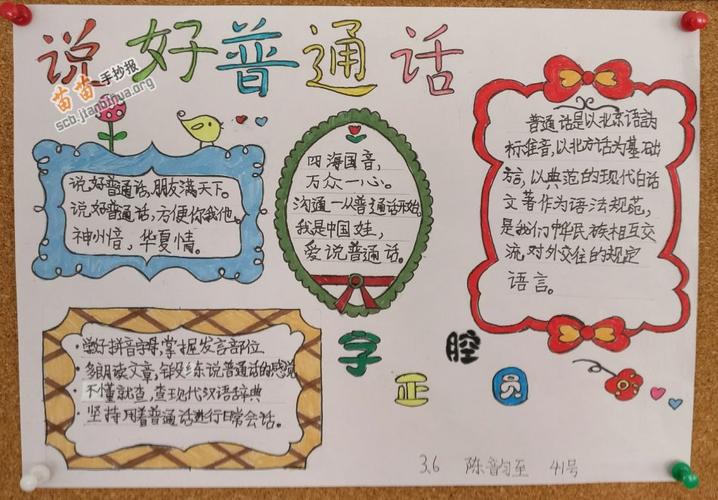 说好普通话
苗苗手抄报
scb.jianbihua.org
说好普通话,朋友满天下。
说好普通话,方便你我他。
神州音,华夏情。
四海国音,
万众一心。
沟通一从普通话开始
我是中国娃,
爱说普通话。
普通话是以北京语音为
标准音,以北方话为基础
言,以典范的现代白话
文著作为语法规范,
是我们中华民族相互交
流,对外交往的规定
语言。
·学好拼音字母,掌握发言部位
·多朗读文章,锻炼说普通话的感觉
不懂就查,查现代汉语辞典
·坚持用着普通话进行日常会话。
字正腔员
3.6 陈韵至 41号